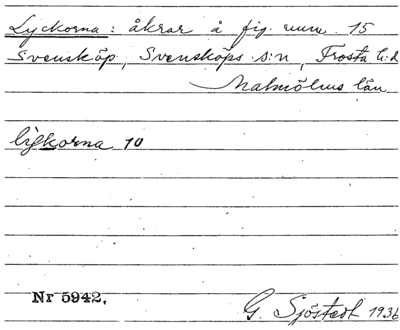 Lyckorna: åkrar å fig num. 15
Svensköp, Svensköps s:n, Frosta h:d
Malmöhus län
lykorna 10
Nr 5942.
G. Sjöstedt 1936